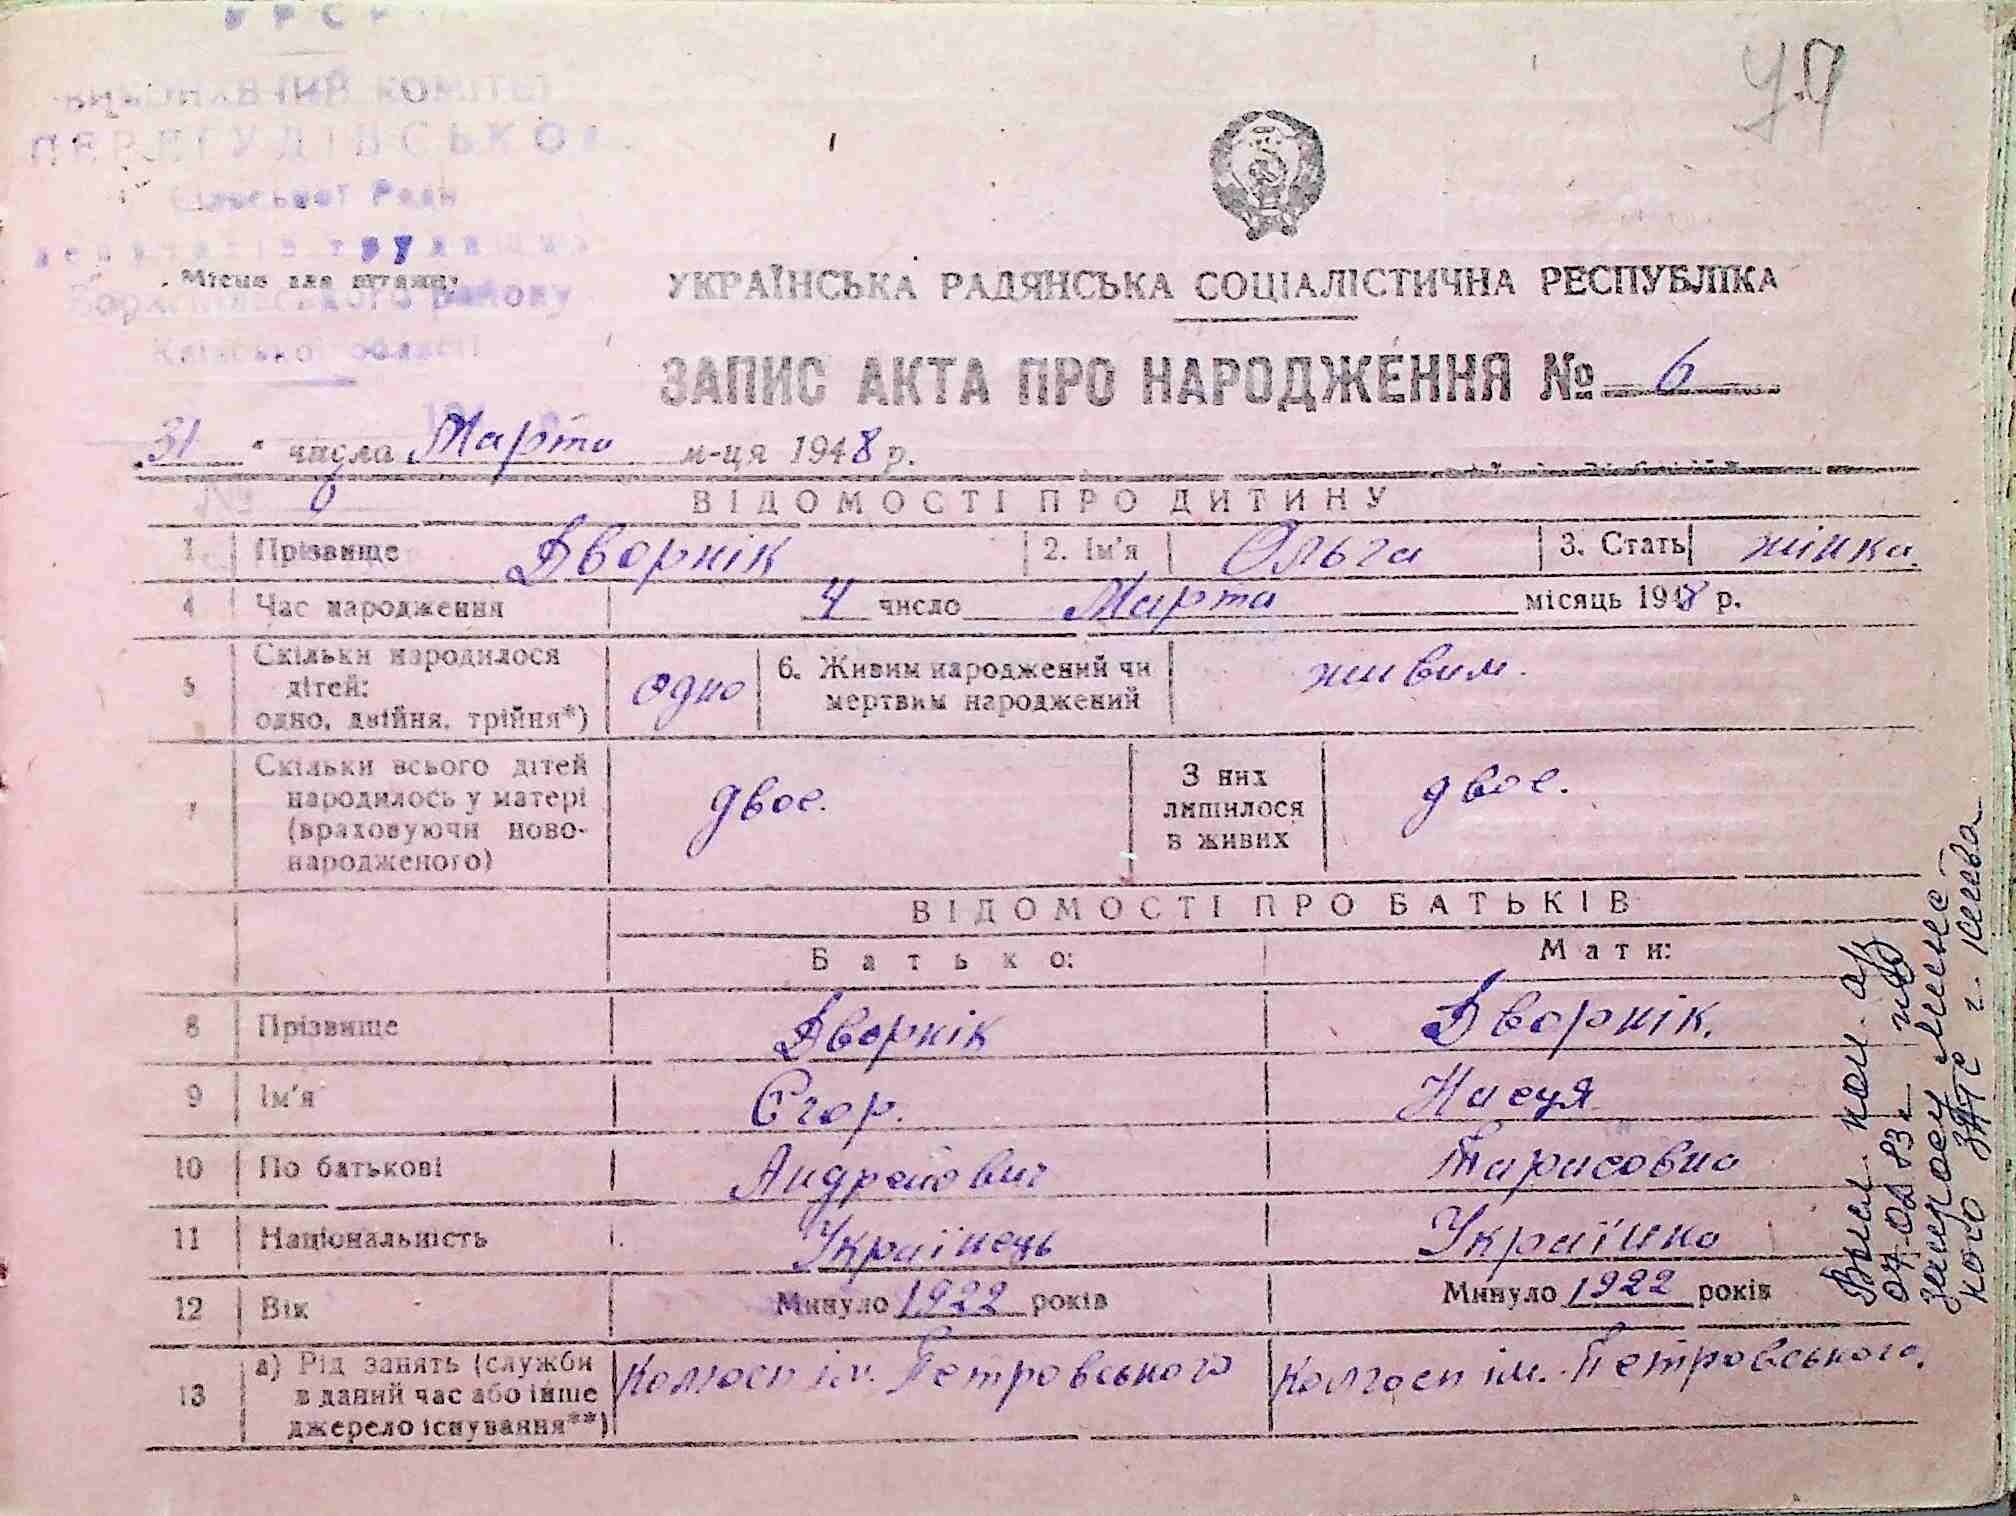 УРСР
ВИКОНАВЧИЙ КОМІТЕТ
ПЕРЕГУДІВСЬКОЇ
Сільської Ради
депутатів трудящих
Місце для штампу
Бориспільського району
Київської області
УКРАЇНСЬКА РАДЯНСЬКА СОЦІАЛІСТИЧНА РЕСПУБЛІКА
ЗАПИС АКТА ПРО НАРОДЖЕННЯ № 6
31 " числа Марта м-ця 1948 р.
№ 6
ВІДОМОСТІ ПРО ДИТИНУ
1 Прізвище Дворнік 2. Ім'я Ольга 3. Стать жінка.
4 Час народження 4 число Марта місяць 1948 р.
5 Скільки народилося дітей: одно, двійня, трійня*) одно 6. Живим народжений чи мертвим народжений живим.
7 Скільки всього дітей народилось у матері (враховуючи новонародженого) двое. З них лишилося в живих двое.
ВІДОМОСТІ ПРО БАТЬКІВ
Батько: Мати:
8 Прізвище Дворнік Дворнік.
9 Ім'я Єгор. Настя
10 По батькові Андрейович Тарасовна
11 Національність Українець Українка
12 Вік Минуло 1922 років Минуло 1922 років
13 а) Рід занять (служби в даний час або інше джерело існування**) Колгосп ім. Петровського Колгосп ім. Петровського.
07.02.83г
запросу Минс-
кого ЗАГС г. Киева